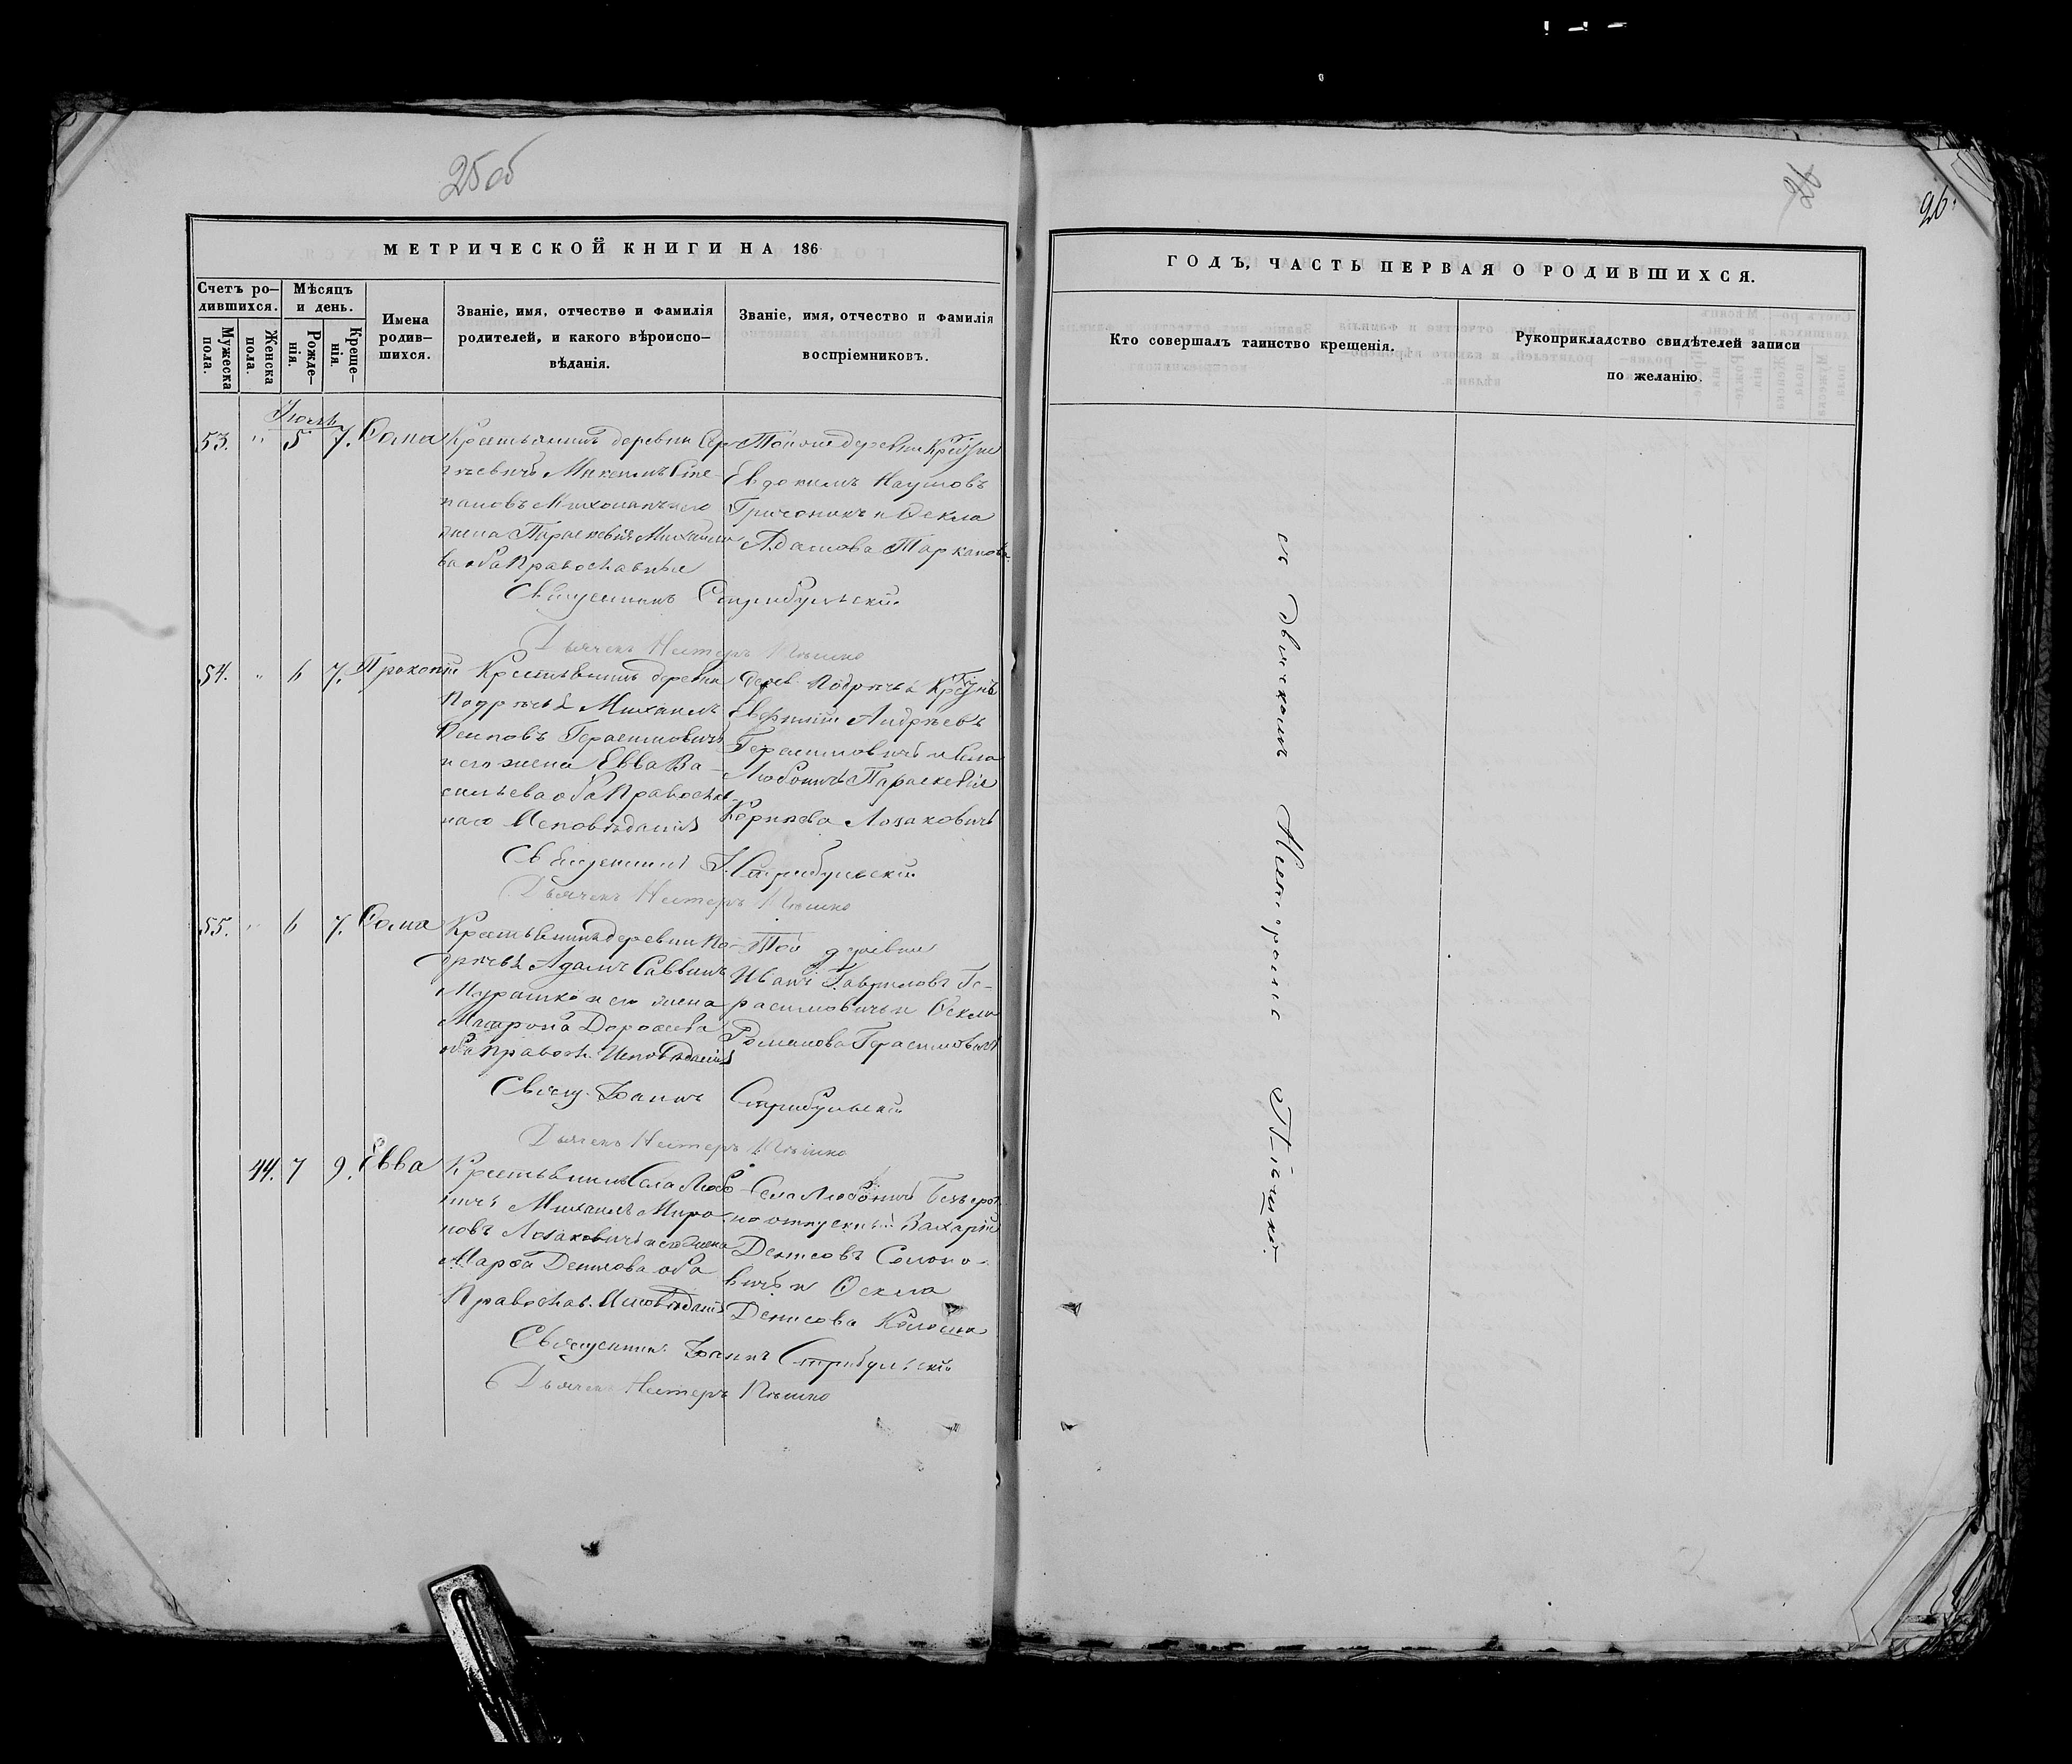 25 об
МЕТРИЧЕСКОЙ КНИГИ НА 186
Счетъ ро-
дившихся.
Мѣсяцъ
и день.
Мужеска
пола.
Женска
пола.
Рожде-
нія.
Креще-
нія.
Имена
родив-
шихся.
Званіе, имя, отчество и фамилія
родителей, и какого вѣроиспо-
вѣданія.
Званіе, имя, отчество и фамилія
воспріемниковъ.
53. " 5 7. Ѳома
Крестьянинъ деревни
жена Параскевія
ва оба Православные
Тойже деревни
Евдокимъ Наумовъ
и Ѳекла
Адамова
Священникъ Стрибульскій
Дьячекъ Нестеръ Пѣшко
54. " 6 7. Прокопій
Крестьянинъ деревни
Подрѣчья Михаилъ
Осиповъ Герасимовичъ
и его жена Евва Ва-
сильева оба Православ-
наго Исповѣданія
дерев. Подрѣчья
Андрѣевъ
Герасимовичъ и села
Любоничъ Параскевія
Лозаковичъ
Священникъ І. Стрибульскій
Дьячекъ Нестеръ Пѣшко
55. " 6 7. Ѳома
Крестьянинъ деревни По-
дрѣчья Адамъ Саввинъ
Мурашко и его жена
Матрона Дороѳеева
оба Правосл. Исповѣданія
Той деревни
Иванъ Гавриловъ Ге-
расимовичъ и Ѳекла
Романова Герасимовичъ
Свящ. Іоаннъ Стрибульскій
Дьячекъ Нестеръ Пѣшко
44. 7 9. Евва
Крестьянинъ Села Любо-
ничъ Михаилъ Миро-
новъ Лозаковичъ и его жена
Марѳа Денисова оба
Православ. Исповѣданія
Села Любоничъ Безсроч-
но отпускный Захарій
Денисовъ
вичъ и Ѳекла
Денисова
Священникъ Іоаннъ Стрибульскій
Дьячекъ Нестеръ Пѣшко
26
26.
ГОДЪ, ЧАСТЬ ПЕРВАЯ О РОДИВШИХСЯ.
Кто совершалъ таинство крещенія.
Рукоприкладство свидѣтелей записи
по желанію.
съ дьячкомъ Несторомъ Пѣшко.